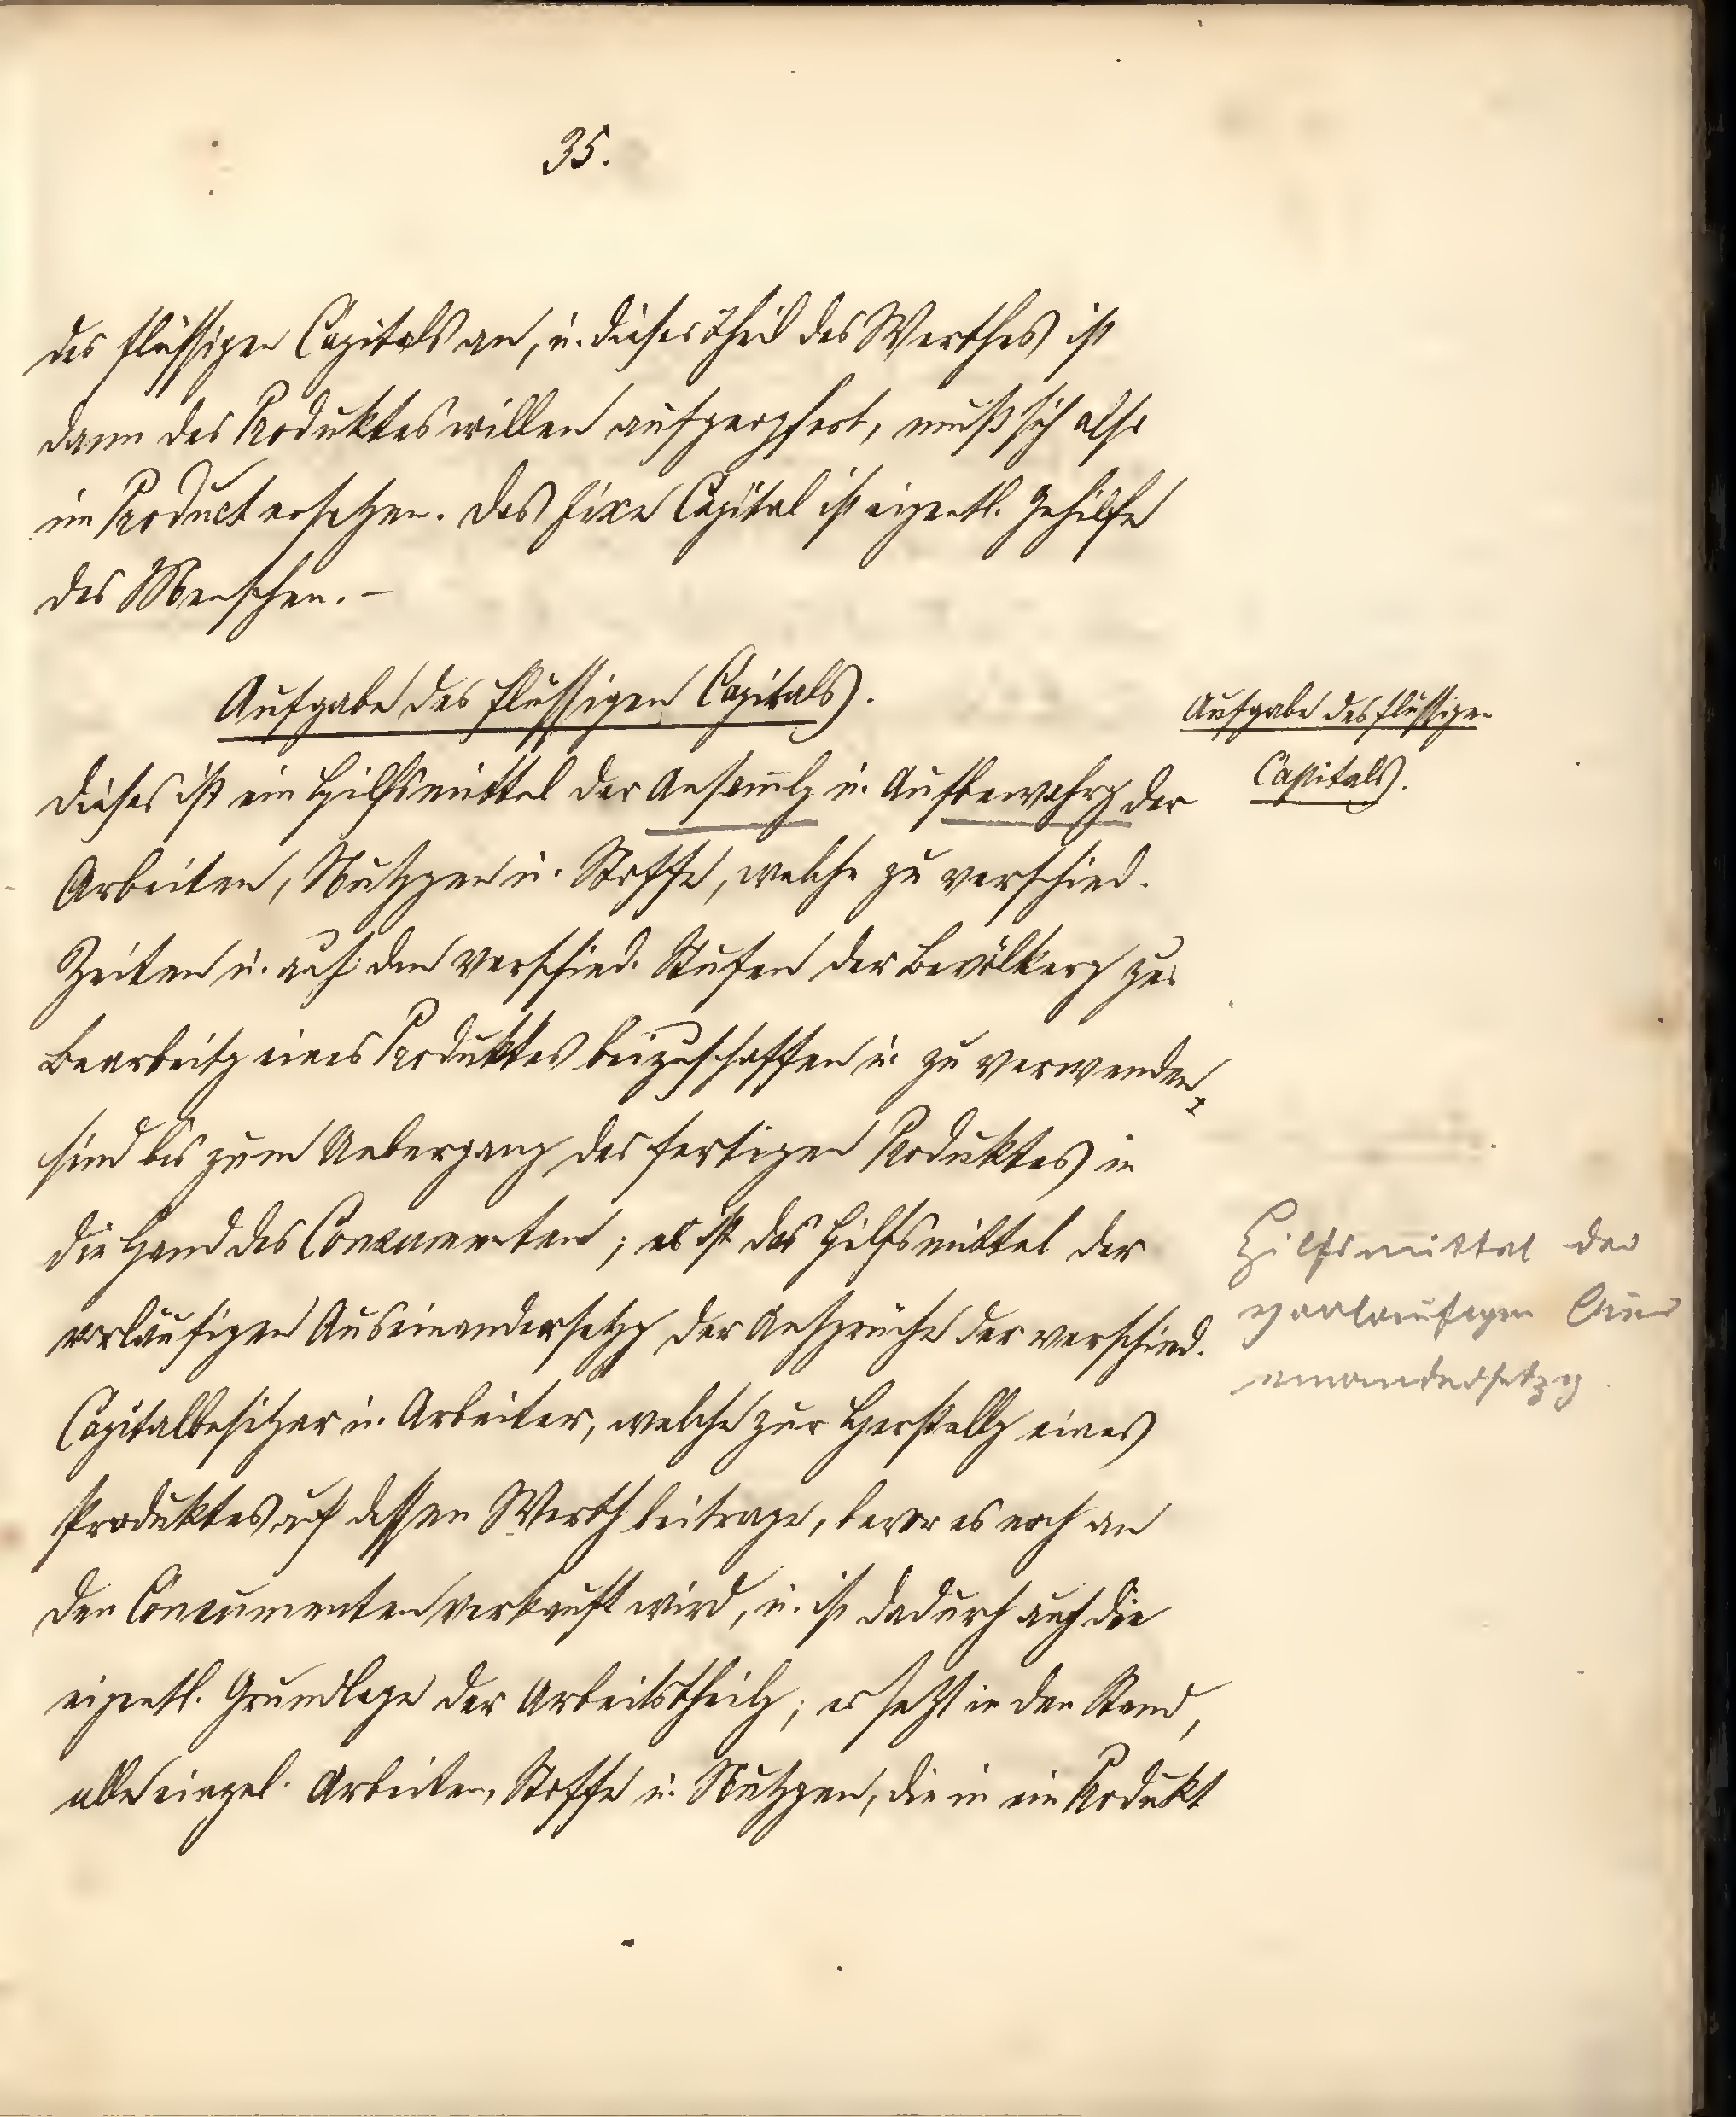 35.
des flüssigen Capitals an, u. dieser Theil des Werthes ist
dann des Produktes willen aufgeopfert, muß sich also
im Product ersetzen. Das fixe Capital ist eigentl. Gehilfe
des Menschen. –
Aufgabe des flüssigen Capitals.
Aufgabe des flüssigen
Capitals.
Dieses ist ein Hilfsmittel der Ansam̅lg u. Aufbewahrg der
Arbeiten, Nutzgen u. Stoffe, welche zu verschied.
Zeiten u. auf den verschied. Stufen der Bevölkerg zur
Bearbeitg eines Produktes beizuschaffen u. zu verwenden
sind bis zum Uebergang des fertigen Produktes in
die Hand des Consumenten; es ist das Hilfsmittel der
vorläufigen Auseinandersetzg der Ansprüche der verschied.
Capitalbesitzer u. Arbeiter, welche zur Herstellg eines
Produktes auf dessen Werth beitrage, bevor es noch an
den Consumenten verkauft wird, u. ist dadurch auch die
eigentl. Grundlage der Arbeitstheilg; er setzt in den Stand,
alle einzel. Arbeiten, Stoffe u. Nutzgen, die in ein Produkt
Hilfsmittel der
vorläufigen Aus
einandersetzg